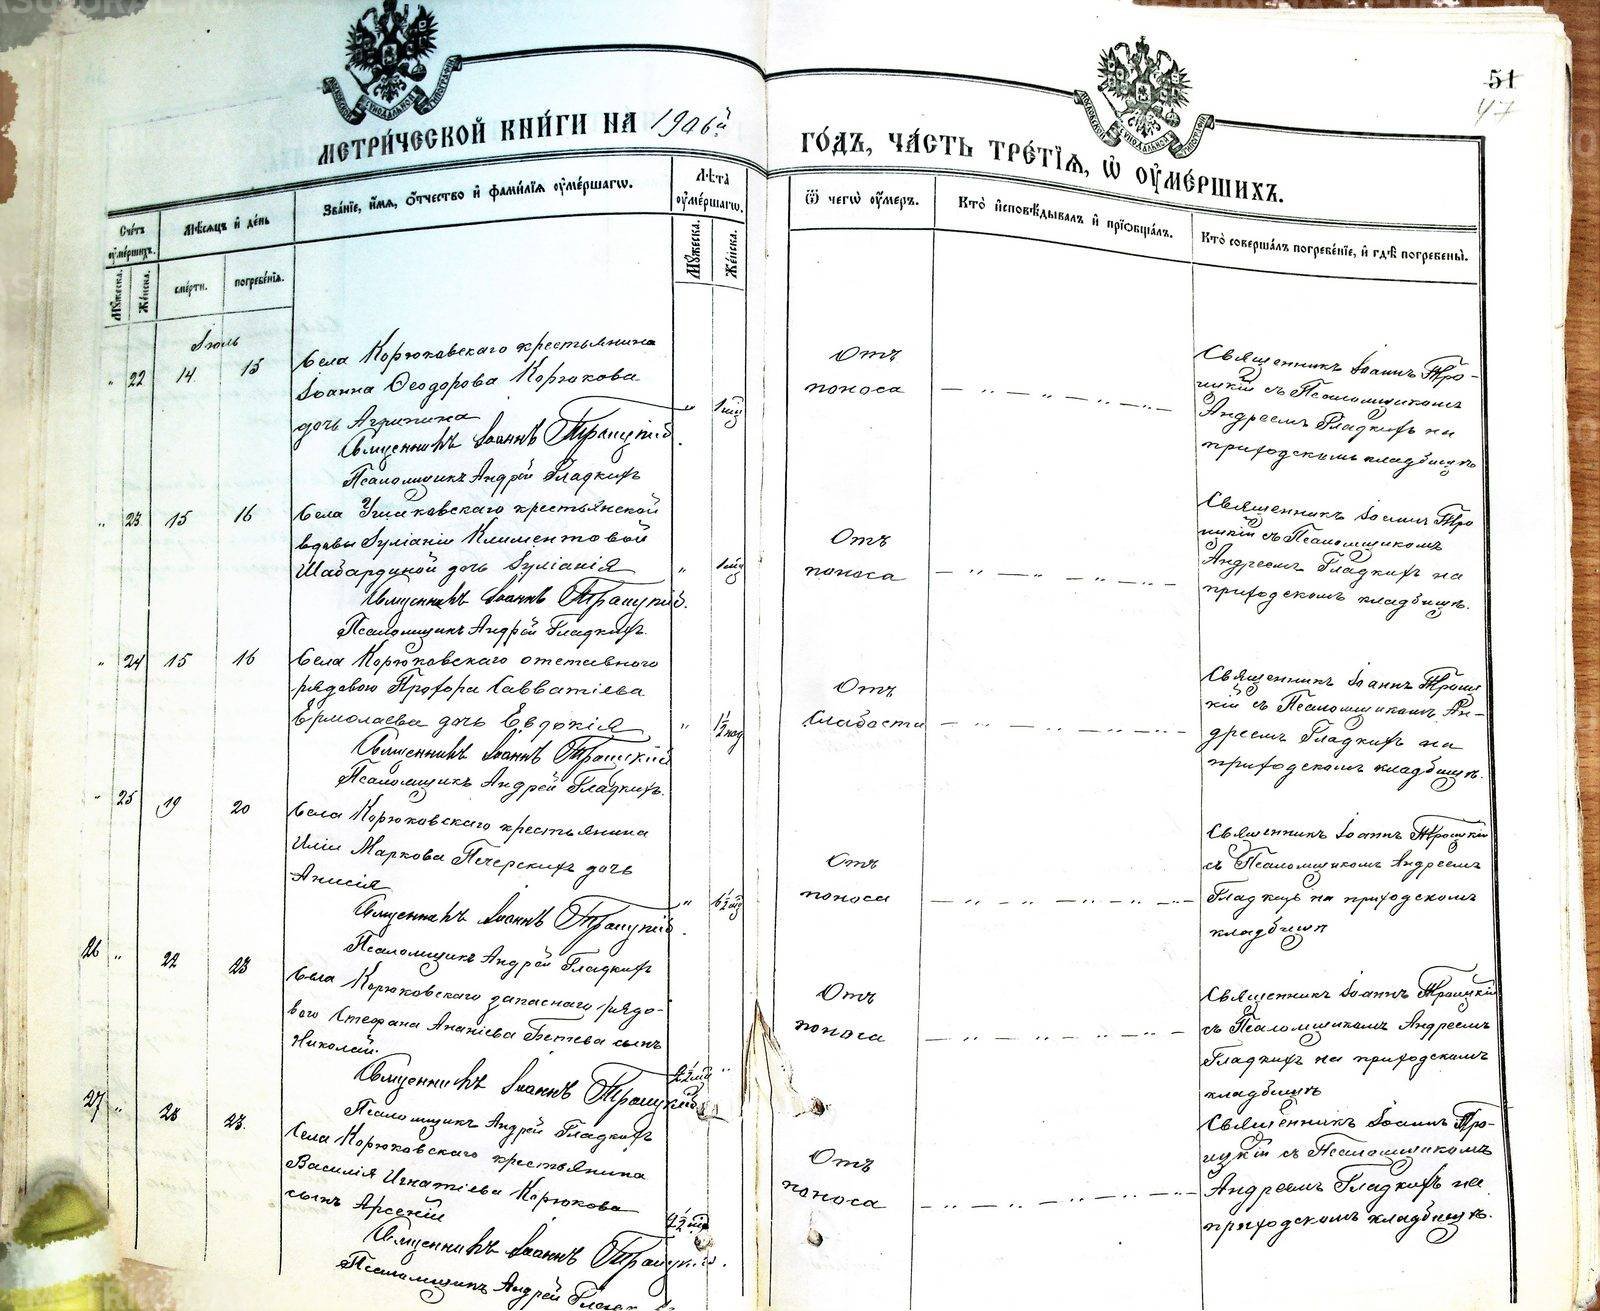 МЕТРИ́ЧЕСКОЙ КНИ́ГИ НА 1906й
ГО́ДЪ, ЧА́СТЬ ТРЕ́ТІѦ, Ѽ ОУМЕ́РШИХЪ.
51
47
Сче́тъ оуме́ршихъ.
Мѣ́сѧцъ и де́нь
Зва́нїе, и́мѧ, о́тчество и фами́лїѧ оуме́ршагѡ.
Лѣ́та оуме́ршагѡ.
Мꙋ́жеска.
Же́нска.
сме́рти.
погребе́нїѧ.
Мꙋ́жеска.
Же́нска.
Ѿ чегѡ̀ оу́меръ.
Кто̀ и҆сповѣ́дывалъ и҆ прїѡбща́лъ.
Кто̀ соверша́лъ погребе́нїе, и҆ гдѣ̀ погребены̀.
Іюль
" 22 14 15
Села Корюковскаго крестьянина
Іоанна Ѳеодорова Корюкова
дочь Агрипина
" 1 мц
Священникъ Іоаннъ Троицкій
Псаломщикъ Андрей Гладкихъ
Отъ
поноса
Священникъ Іоаннъ Тро-
ицкій съ Псаломщикомъ
Андреемъ Гладкихъ на
приходскомъ кладбищѣ
" 23 15 16
Села Угимковскаго крестьянской
вдовы Іуліаніи Климентовой
Шабардиной дочь Іуліанія
" 1 мц
Священникъ Іоаннъ Троицкій.
Псаломщикъ Андрей Гладкихъ.
Отъ
поноса
Священникъ Іоаннъ Тро
ицкій съ Псаломщикомъ
Андреемъ Гладкихъ на
приходскомъ кладбищѣ.
" 24 15 16
Села Корюковскаго отставного
рядового Прохора Савватіева
Ермолаева дочь Евдокія
" 1½ год
Священникъ Іоаннъ Троицкій
Псаломщикъ Андрей Гладкихъ.
Отъ
слабости
Священникъ Іоаннъ Троиц
кій съ Псаломщикомъ Ан-
дреемъ Гладкихъ на
приходскомъ кладбищѣ.
" 25 19 20
Села Корюковскаго крестьянина
Иліи Маркова Печерскихъ дочь
Анисія
" 6½ мц
Священникъ Іоаннъ Троицкій.
Псаломщикъ Андрей Гладкихъ
Отъ
поноса
Священникъ Іоаннъ Троицкій
съ Псаломщикомъ Андреемъ
Гладкихъ на приходскомъ
кладбищѣ
26 " 22 23
Села Корюковскаго запаснаго рядо-
вого Стефана Ананіева Бетева сынъ
Николай.
Священникъ Іоаннъ Троицкій
Псаломщикъ Андрей Гладкихъ
Отъ
поноса
Священникъ Іоаннъ Троицкій
съ Псаломщикомъ Андреемъ
Гладкихъ на приходскомъ
кладбищѣ
27 " 23.
Села Корюковскаго крестьянина
Василія Игнатіева Корюкова
сынъ Арсеній
Священникъ Іоаннъ Троицкій.
Псаломщикъ Андрей
Отъ
поноса
Священникъ Іоаннъ Тро-
ицкій съ Псаломщикомъ
Андреемъ Гладкихъ на
приходскомъ кладбищѣ.